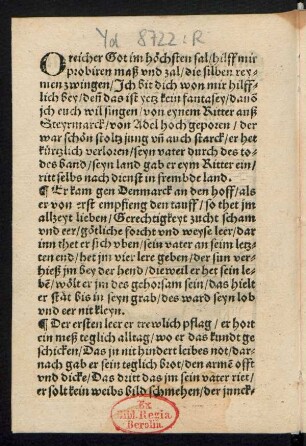 Yd 8722:R
O reicher Got im höchsten sal/ hilff mir
probiren maß vnd zal/ die silben rey-
men zwingen/ Ich bit dich won mir hilff-
lich bey/ deñ das ist yetz kein fantasey/ dauõ
jch euch wil singen/ von eynem Ritter auß
Steyrmarck/ von Adel hoch geporen/ der
war schön stoltz jung vñ auch starck/ er het
kürtzlich verloren/ seyn vater durch des to-
des band/ seyn land gab er eym Ritter ein/
ritt selbs nach dienst in frembde land.
¶ Er kam gen Denmarck an den hoff/ als
er von erst empfieng den tauff/ so thet jm
allzeyt lieben/ Gerechtigkeyt zucht scham
vnd eer/ götliche forcht vnd weyse leer/ dar
inn thet er sich vben/ sein vater an seim letz-
ten end/ het jm vier lere geben/ der sun ver-
hieß jm bey der hend/ dieweil er het sein le-
bẽ/ wölt er jm des gehorsam sein/ das hielt
er stät bis in seyn grab/ des ward seyn lob
vnd eer nit kleyn.
¶ Der ersten leer er trewlich pflag/ er hort
ein meß teglich alltag/ wo er das kundt ge
schicken/ Das jn nit hindert leibes not/ dar-
nach gab er sein teglich brot/ den armẽ offt
vnd dicke/ Das dritt das jm sein vater riet/
er solt kein weibs bild schmehen/ der junck-
Ex
Bibl. Regia
Berolin.